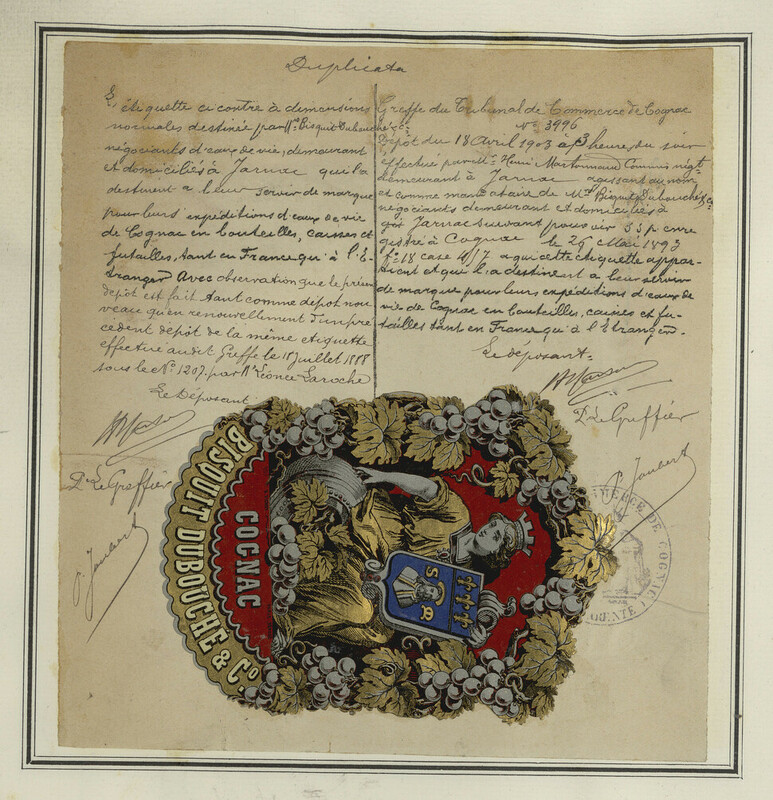 Duplicata
L'étiquette ci contre à dimensions
normales destinée par Mrs Bisquit Dubouché & Cie
négociants d'eaux de vie, demeurant
et domiciliés à Jarnac qu'il a
destinent a leur servir de marque
pour leurs expéditions d'eaux de vie
de Cognac en bouteilles, caisses et
futailles, tant en France qu'à l'E-
tranger. Avec observation que le présent
dépôt est fait tant comme dépôt nou
veau qu'en renouvellement d'un pré
cédent dépôt de la même étiquette
effectué au dit Greffe le 18 Juillet 1888
sous le No. 1207. par Mr Léonce Laroche
Le Déposant
Dr Le Greffier
P. Joubert
Greffe du Tribunal de Commerce de Cognac
No 3996
Dépôt du 18 Avril 1903 à 3 heures du soir
effectué par Mr. Henri Martonnaud Commis négt.
demeurant à Jarnac agissant au nom
et comme mandataire de Mrs Bisquit Dubouché & Cie
négociants demeurant et domiciliés à
Jarnac suivant pouvoir s s p enre
gistré à Cognac le 29 Mai 1893
fo 18 case 4/7 a qui cette étiquette appar-
tient et qui l'a destinent a leur servir
de marque pour leurs expéditions d'eaux de
vie de Cognac en bouteilles, caisses et fu-
tailles tant en France qu'à l'Etranger.
Le déposant.
Dr Le Greffier
P. Joubert
COGNAC
BISQUIT DUBOUCHÉ & Co
COMMERCE DE COGNAC
CHARENTE